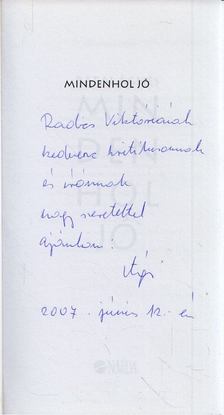 MINDENHOL JÓ
Radics Viktóriának
kedvenc kritikusomnak
és írómnak
nagy szeretettel
ajánlom:
Ági
2007. június 12-én